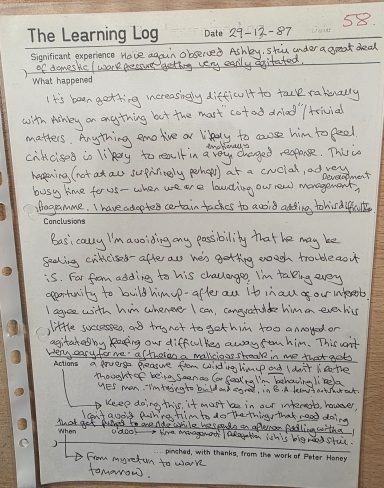 58.
The Learning Log Date 29-12-87
Significant experience Have again observed Ashley, still under a great deal
of domestic/work pressure getting very early agitated.
What happened
It's been getting increasingly difficult to talk rationally
with Ashley on anything but the most "cot and dried"/trivial
matters. Anything emotive or likely to cause him to feel
criticised is likely to result in a very emotionally charged response. This is
happening (not at all surprisingly perhaps) at a crucial, and very
busy time for us - when we are launching our new management Development
programme. I have adopted certain tactics to avoid adding to his difficulties
Conclusions
Basically I'm avoiding any possibility that he may be
feeling criticised - after all he's getting enough trouble as it
is. Far from adding to his challenges, I'm taking every
opportunity to build him up - after all its in all of our interests.
I agree with him wherever I can, congratulate him on even his
little successes, and try not to get him too annoyed or
agitated by keeping our difficulties away from him. This isn't
very easy for me - as there is a malicious streak in me that gets
Actions a perverse pleasure from winding him up and I don't like the
thought of being seen as (or feeling I'm behaving like) a
YES man.
→ Keep doing this, it must be in our interests, however,
I can't avoid pushing him to do the things that need doing
that get pushed to one side while he spends an afternoon fiddling with a
When video → time management/delegation is his big need still.
... pinched, with thanks, from the work of Peter Honey
→ From my return to work
tomorrow.